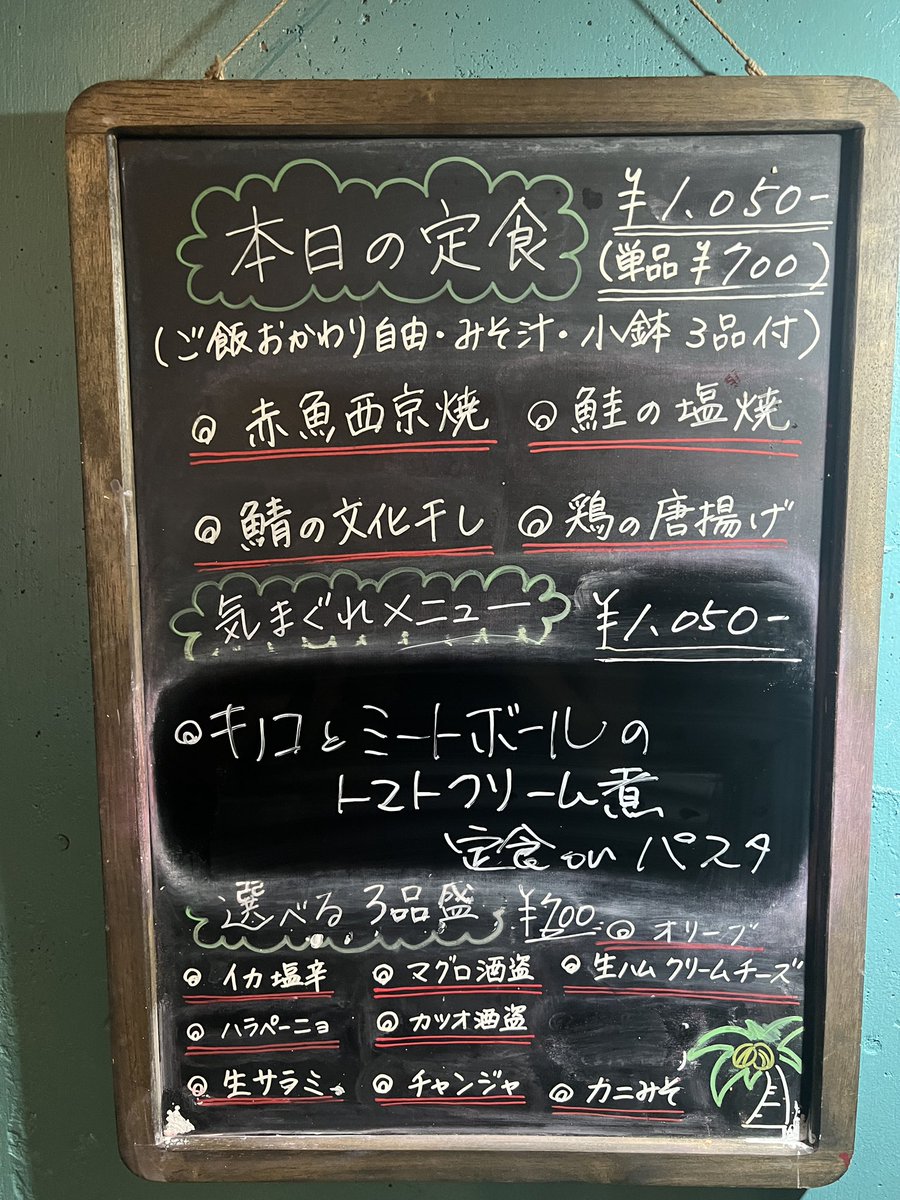 本日の定食 ¥1.050-
(単品 ¥700)
(ご飯おかわり自由・みそ汁・小鉢 3品付)
◎ 赤魚西京焼 ◎ 鮭の塩焼
◎ 鯖の文化干し ◎ 鶏の唐揚げ
気まぐれメニュー ¥1.050-
◎ キノコとミートボールの
トマトクリーム煮
定食 or パスタ
選べる 3品盛 ¥700 ◎ オリーブ
◎ イカ塩辛 ◎ マグロ酒盗 ◎ 生ハムクリームチーズ
◎ ハラペーニョ ◎ カツオ酒盗
◎ 生サラミ ◎ チャンジャ ◎ カニみそ